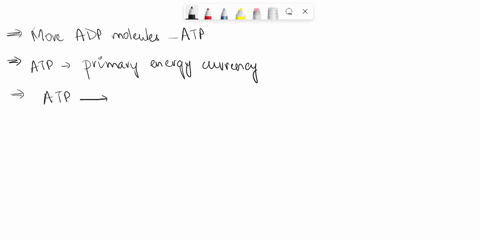 ⇒ More ADP molecules - ATP
⇒ ATP → primary energy currency
⇒ ATP ⟶